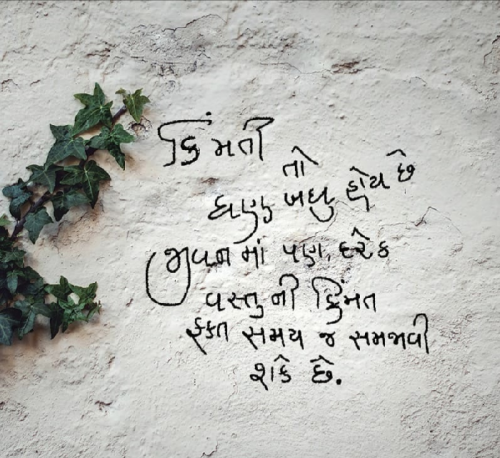 કિંમતી
તો
ઘણુ બધુ હોય છે
જીવન માં પણ, દરેક
વસ્તુ ની કિંમત
ફક્ત સમય જ સમજાવી
શકે છે.